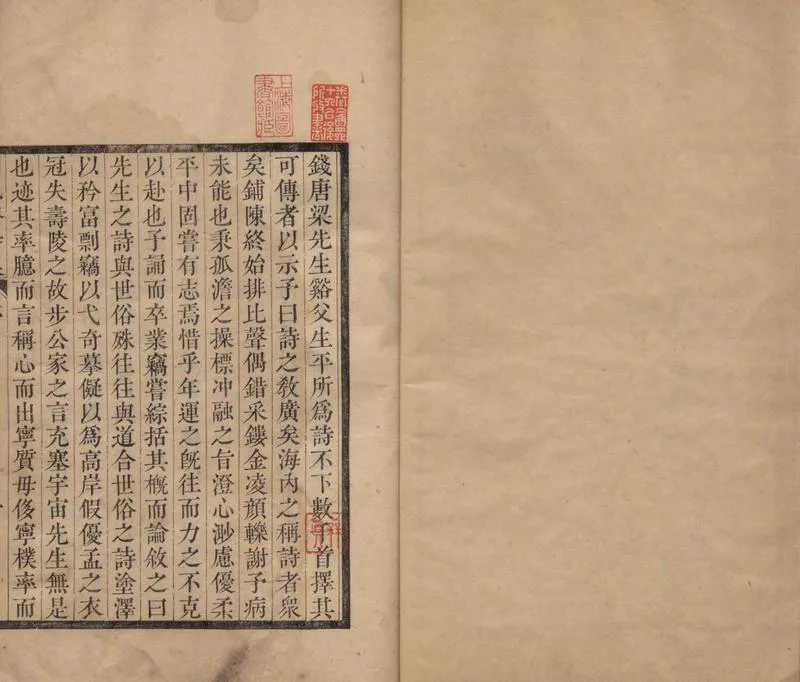 錢唐梁先生谿父生平所爲詩不下數千首擇其
可傳者以示予曰詩之敎廣矣海內之稱詩者衆
矣鋪陳終始排比聲偶錯采鏤金凌顏轢謝予病
未能也秉孤澹之操標冲融之旨澄心渺慮優柔
平中固嘗有志焉惜乎年運之旣往而力之不克
以赴也予誦而卒業竊嘗綜括其槪而論敘之曰
先生之詩與世俗殊往往與道合世俗之詩塗澤
以矜富剽竊以弋奇摹儗以爲高岸假優孟之衣
冠失壽陵之故步公家之言充塞宇宙先生無是
也迹其率臆而言稱心而出寧質毋侈寧樸率而
上海圖
書館藏